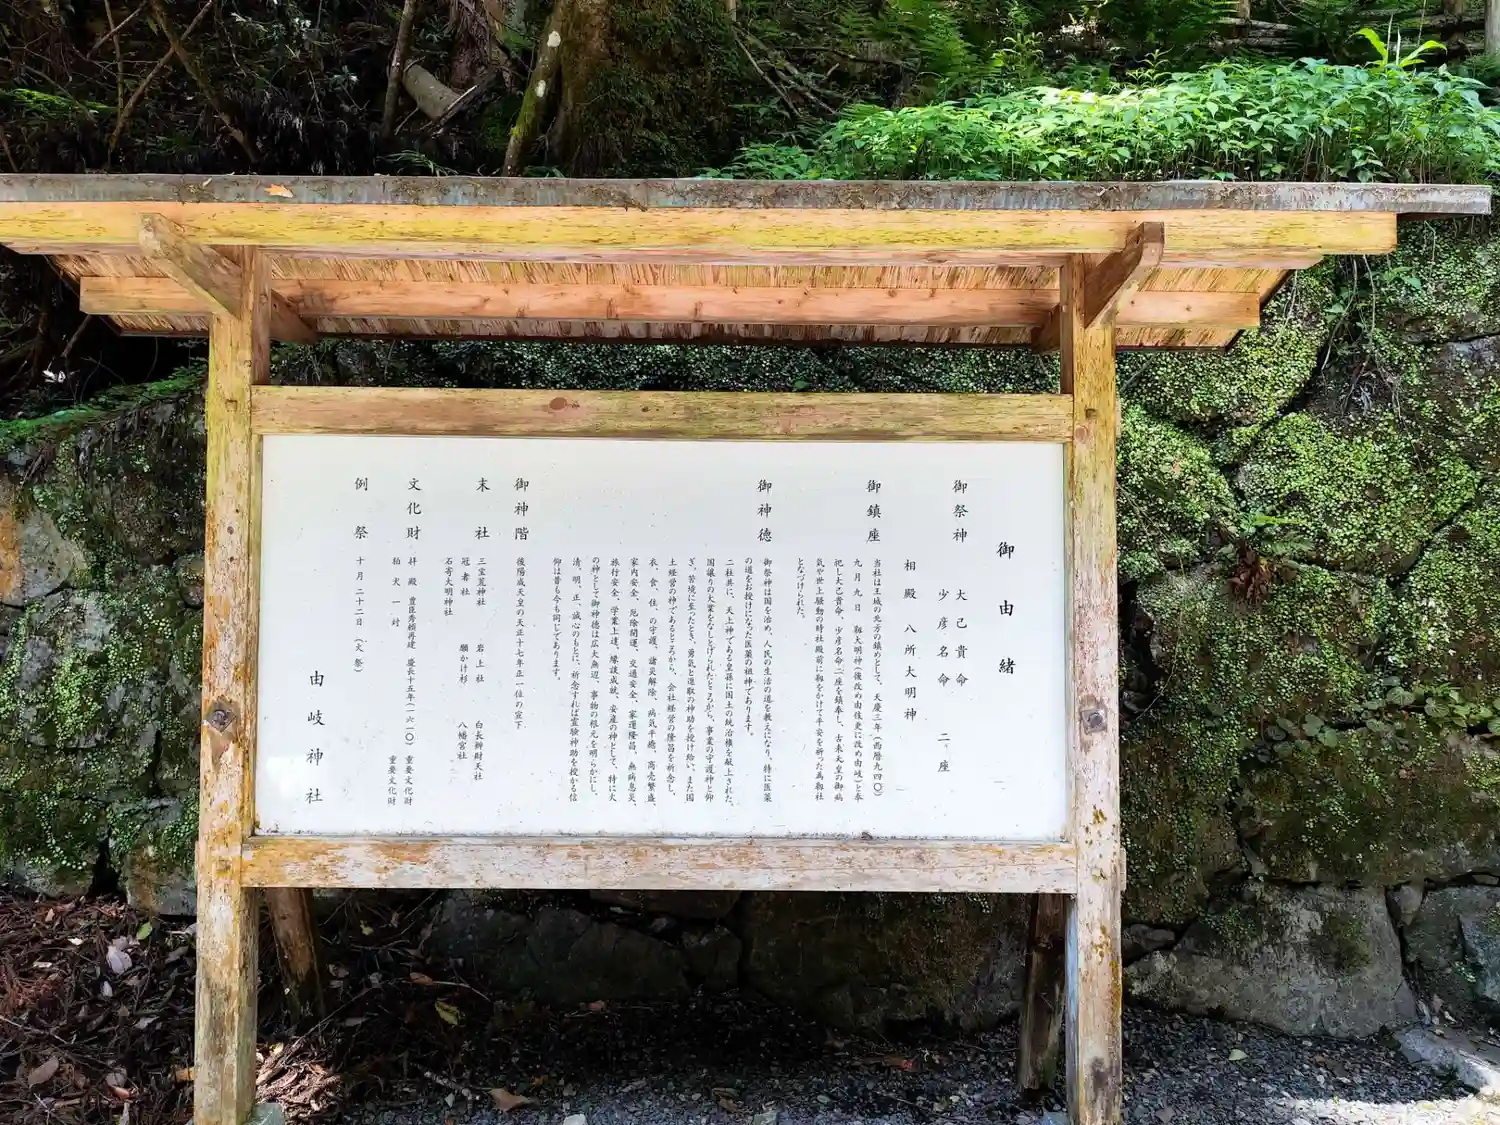 御由緒
御祭神 大己貴命
少彦名命 二座
相殿 八所大明神
御鎮座 当社は王城の北方の鎮めとして、天慶三年（西暦九四〇）
九月九日 靱大明神（後改め由後更に改め由岐）と奉
祀し大己貴命、少彦名命二座を鎮奉し、古来天皇の御病
気や世上騒動の時社殿前に靱をかけて平安を祈った為靱社
となづけられた。
御神徳 御祭神は国を治め、人民の生活の道を教えになり、特に医薬
の道をお授けになった医薬の祖神であります。
二社共に、天上神である皇孫に国土の統治権を献上された、
国譲りの大業をなしとげられたところから、事業の守護神と仰
ぎ、苦境に至ったとき、勇気と進取の神助を授け給い、また国
土経営の神であるところから、会社経営の隆昌を祈念し、
衣、食、住、の守護、諸災解除、病気平癒、商売繁盛
家内安全、厄除開運、交通安全、家運隆昌、無病息災、
旅行安全、学業上達、縁談成就、安産の神として、特に火
の神として御神徳は広大無辺、事物の根元を明らかにし、
清、明、正、誠心のもとに、祈念すれば霊験神助を授かる信
仰は昔も今も同じであります。
御神階 後陽成天皇の天正十七年正一位の宣下
末社 三宝荒神社 岩上社 白長辨財天社
冠者社 願かけ杉 八幡宮社
石寄大明神社
文化財 拝殿 豊臣秀頼再建 慶長十五年（一六一〇） 重要文化財
狛犬一対 重要文化財
例祭 十月二十二日（火祭）
由岐神社